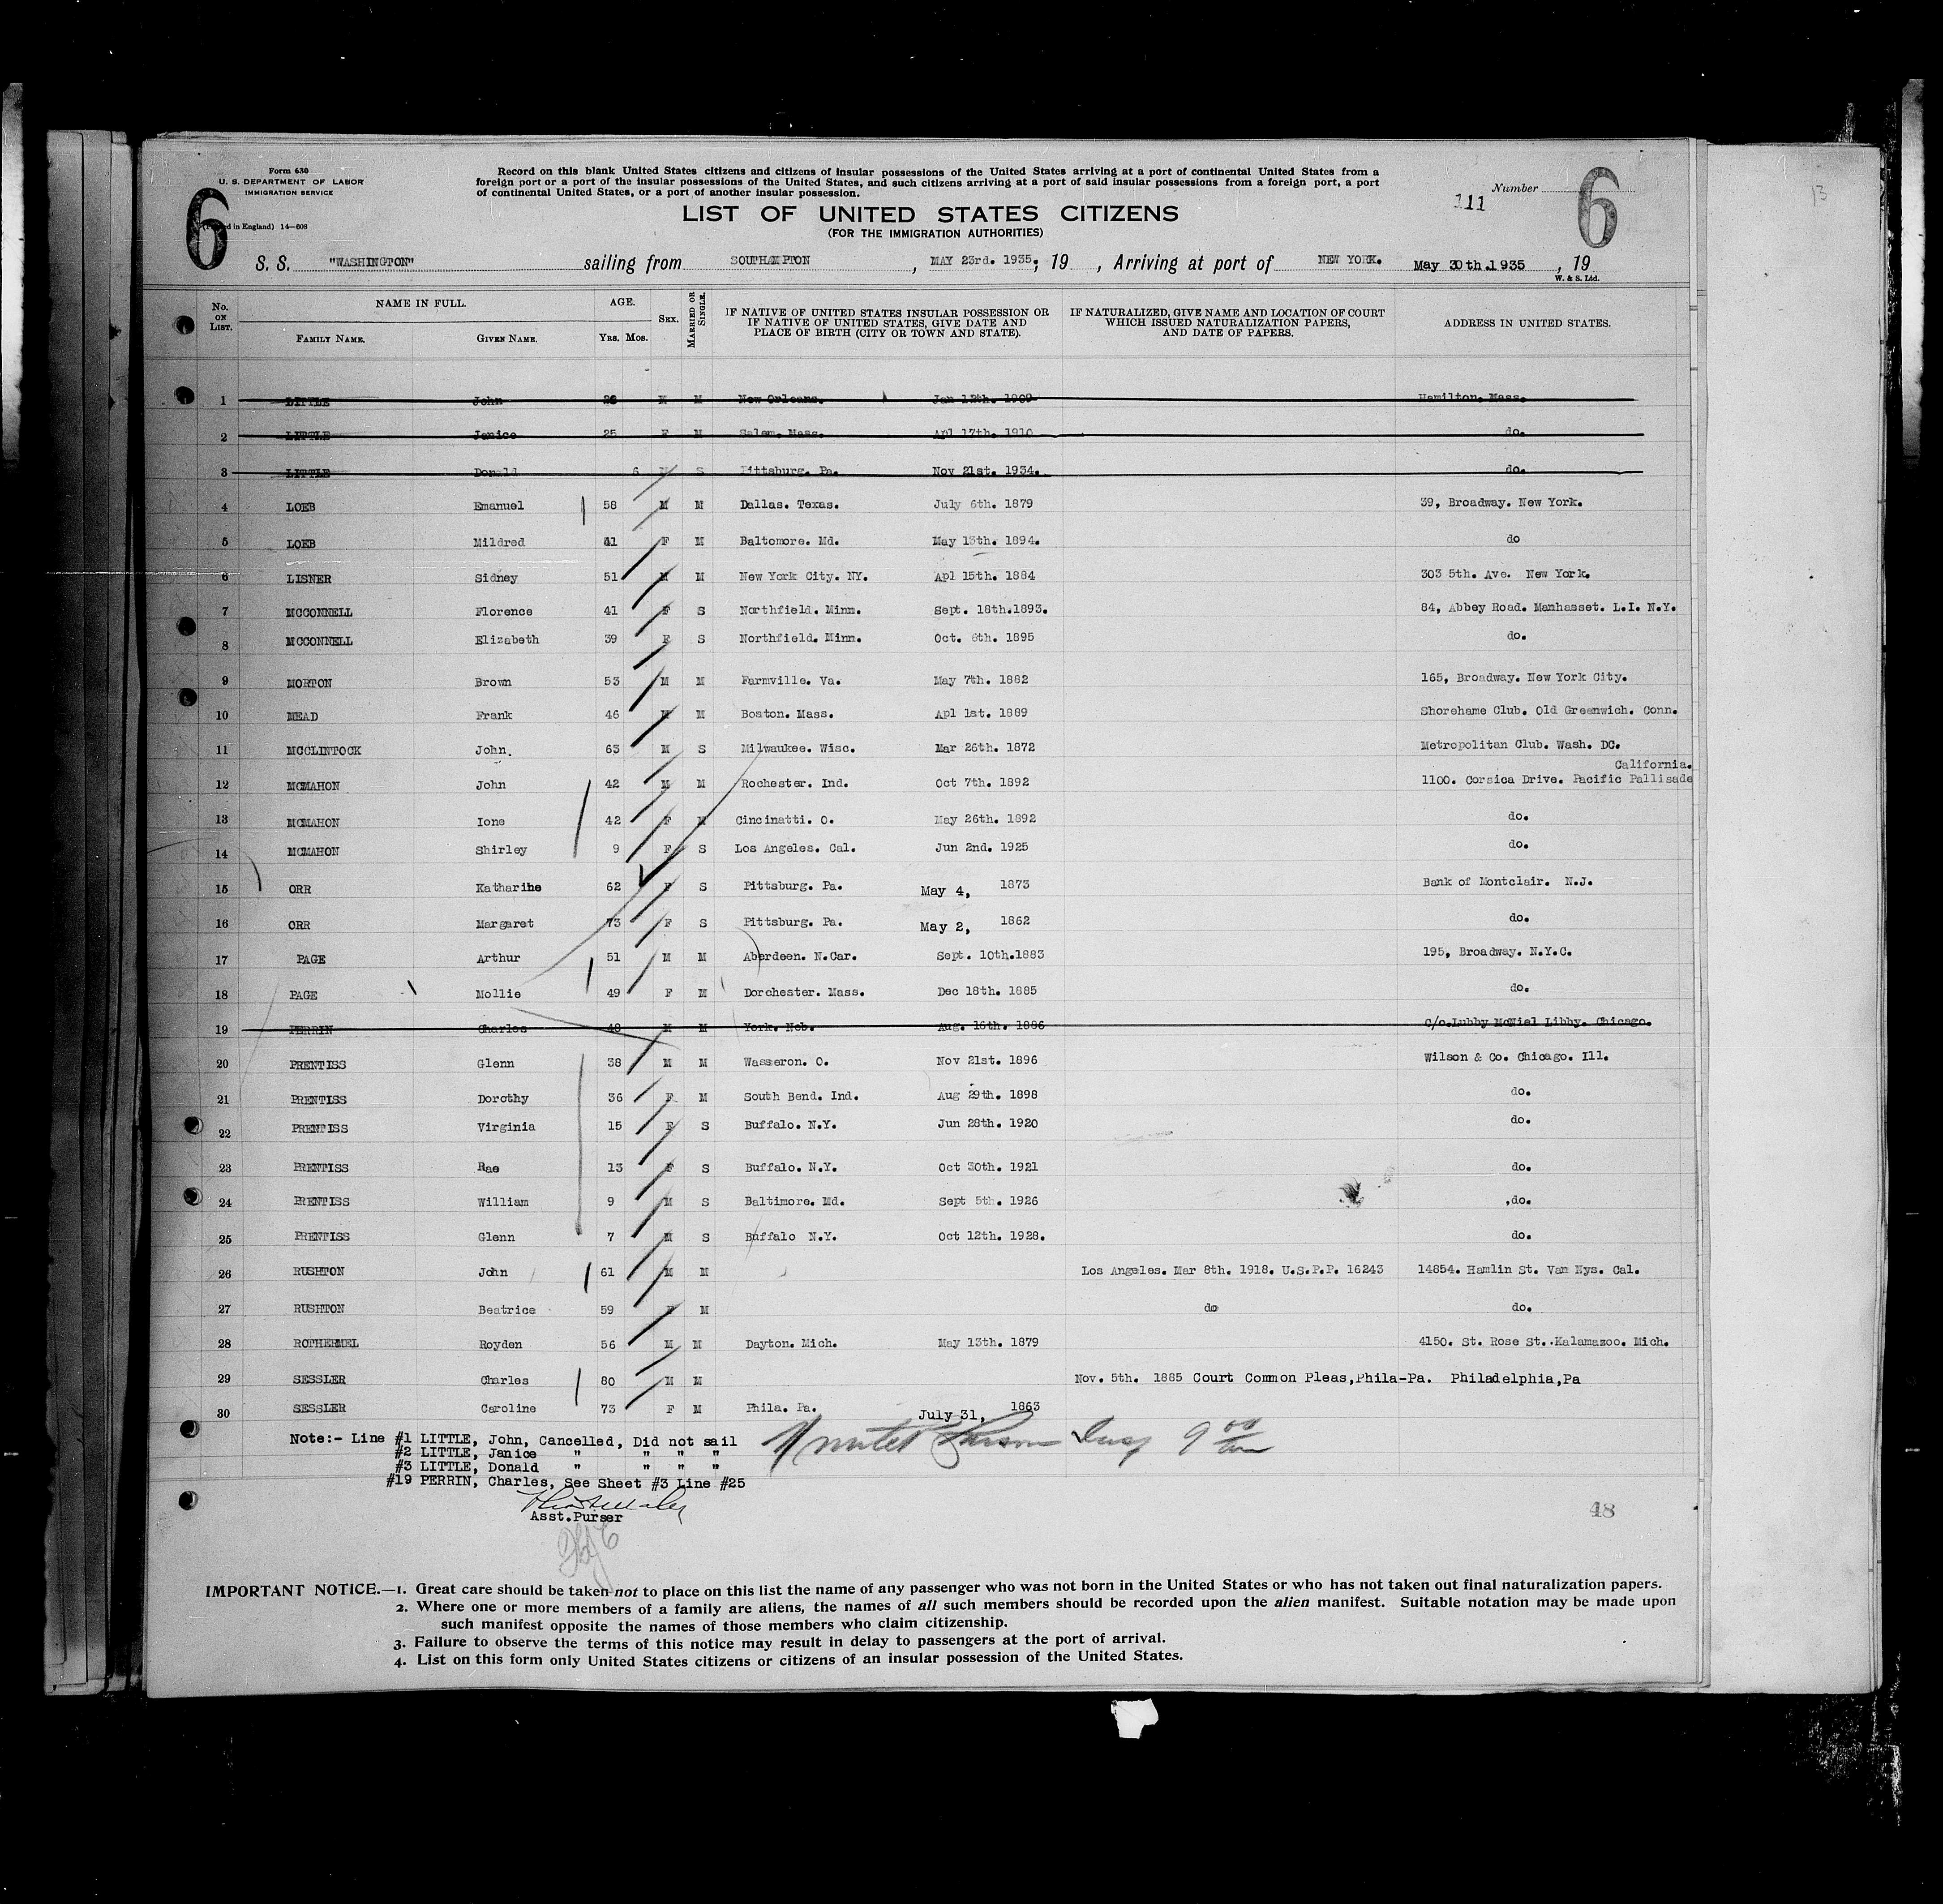 Form 630
U. S. DEPARTMENT OF LABOR
IMMIGRATION SERVICE
(Printed in England) 14—608
6
Record on this blank United States citizens and citizens of insular possessions of the United States arriving at a port of continental United States from a
foreign port or a port of the insular possessions of the United States, and such citizens arriving at a port of said insular possessions from a foreign port, a port
of continental United States, or a port of another insular possession.
Number
111
6
13
LIST OF UNITED STATES CITIZENS
(FOR THE IMMIGRATION AUTHORITIES)
S. S. "WASHINGTON" sailing from SOUTHAMPTON, MAY 23rd. 1935; 19 , Arriving at port of NEW YORK. May 30th.1935, 19
W. & S. Ltd.
No. ON LIST. NAME IN FULL. FAMILY NAME. GIVEN NAME. AGE. YRS. MOS. SEX. MARRIED OR SINGLE. IF NATIVE OF UNITED STATES INSULAR POSSESSION OR IF NATIVE OF UNITED STATES, GIVE DATE AND PLACE OF BIRTH (CITY OR TOWN AND STATE). IF NATURALIZED, GIVE NAME AND LOCATION OF COURT WHICH ISSUED NATURALIZATION PAPERS, AND DATE OF PAPERS. ADDRESS IN UNITED STATES.
1 LITTLE John 26 M M New Orleans. Jan 12th. 1909 Hamilton. Mass.
2 LITTLE Janice 25 F M Salem. Mass. Apl 17th. 1910 do.
3 LITTLE Donald 6 S Pittsburg. Pa. Nov 21st. 1934. do.
4 LOEB Emanuel 58 M M Dallas. Texas. July 6th. 1879 39, Broadway. New York.
5 LOEB Mildred 41 F M Baltomore. Md. May 13th. 1894. do
6 LISNER Sidney 51 M M New York City. NY. Apl 15th. 1884 303 5th. Ave. New York.
7 MCCONNELL Florence 41 F S Northfield. Minn. Sept. 18th.1893. 84, Abbey Road. Manhasset. L.I. N.Y.
8 MCCONNELL Elizabeth 39 F S Northfield. Minn. Oct. 6th. 1895 do.
9 MORTON Brown 53 M M Farmville. Va. May 7th. 1882 165, Broadway. New York City.
10 MEAD Frank 46 M M Boston. Mass. Apl 1at. 1889 Shorehame Club. Old Greenwich. Conn.
11 MCCLINTOCK John. 63 M S Milwaukee. Wisc. Mar 26th. 1872 Metropolitan Club. Wash. DC.
California.
12 MCMAHON John 42 M M Rochester. Ind. Oct 7th. 1892 1100. Corsica Drive. Pacific Pallisade
13 MCMAHON Ione 42 F M Cincinatti. O. May 26th. 1892 do.
14 MCMAHON Shirley 9 F S Los Angeles. Cal. Jun 2nd. 1925 do.
15 ORR Katharine 62 F S Pittsburg. Pa. May 4, 1873 Bank of Montclair. N.J.
16 ORR Margaret 73 F S Pittsburg. Pa. May 2, 1862 do.
17 PAGE Arthur 51 M M Aberdeen. N.Car. Sept. 10th.1883 195, Broadway. N.Y.C.
18 PAGE Mollie 49 F M Dorchester. Mass. Dec 18th. 1885 do.
19 PERRIN Charles 48 M M York. Neb. Aug. 16th. 1886 c/o.Lubby McNiel Libby. Chicago.
20 PRENTISS Glenn 38 M M Wasseron. O. Nov 21st. 1896 Wilson & Co. Chicago. Ill.
21 PRENTISS Dorothy 36 F M South Bend. Ind. Aug 29th. 1898 do.
22 PRENTISS Virginia 15 F S Buffalo. N.Y. Jun 28th. 1920 do.
23 PRENTISS Rae 13 F S Buffalo. N.Y. Oct 30th. 1921 do.
24 PRENTISS William 9 M S Baltimore. Md. Sept 5th. 1926 do.
25 PRENTISS Glenn 7 M S Buffalo N.Y. Oct 12th. 1928. do.
26 RUSHTON John 61 M M Los Angeles. Mar 8th. 1918. U.S.P.P. 16243 14854. Hamlin St. Van Nys. Cal.
27 RUSHTON Beatrice 59 F M do do.
28 ROTHERMEL Royden 56 M M Dayton. Mich. May 13th. 1879 4150. St. Rose St. Kalamazoo. Mich.
29 SESSLER Charles 80 M M Nov. 5th. 1885 Court Common Pleas,Phila-Pa. Philadelphia,Pa
30 SESSLER Caroline 73 F M Phila. Pa. July 31, 1863
Note:- Line #1 LITTLE, John, Cancelled, Did not sail
#2 LITTLE, Janice " " " "
#3 LITTLE, Donald " " " "
#19 PERRIN, Charles, See Sheet #3 Line #25
Asst.Purser
48
IMPORTANT NOTICE.—1. Great care should be taken not to place on this list the name of any passenger who was not born in the United States or who has not taken out final naturalization papers.
2. Where one or more members of a family are aliens, the names of all such members should be recorded upon the alien manifest. Suitable notation may be made upon
such manifest opposite the names of those members who claim citizenship.
3. Failure to observe the terms of this notice may result in delay to passengers at the port of arrival.
4. List on this form only United States citizens or citizens of an insular possession of the United States.